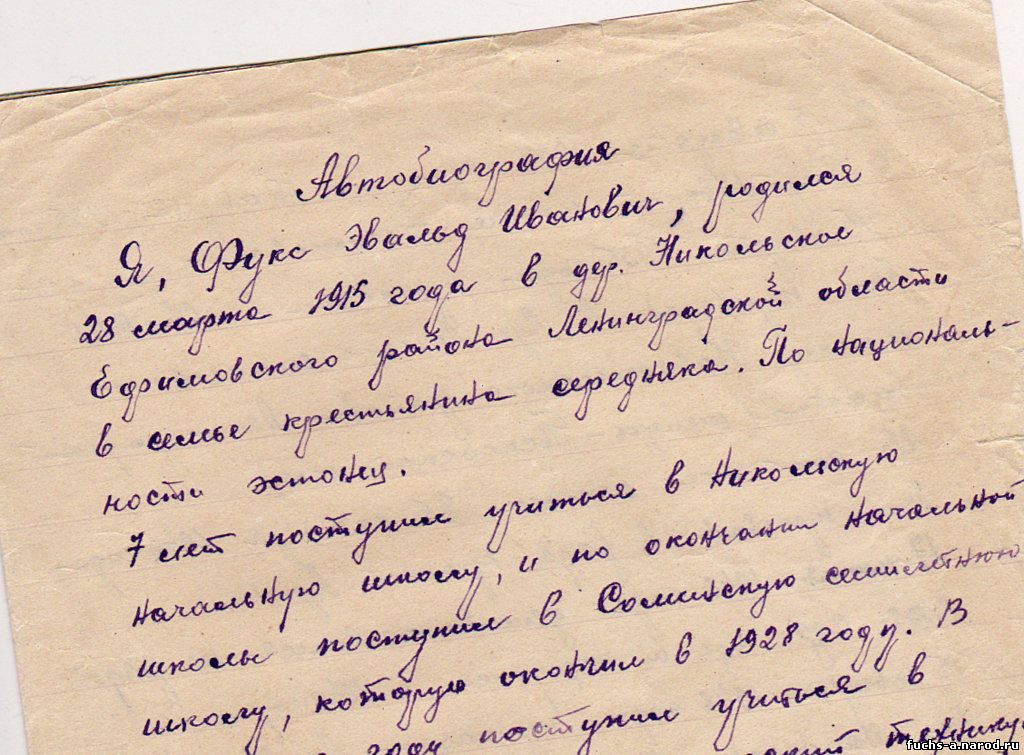 Автобиография
Я, Фукс Эвальд Иванович, родился
28 марта 1915 года в дер. Никольское
Ефимовского района Ленинградской области
в семье крестьянина середняка. По националь-
ности эстонец.
7 лет поступил учиться в Никольскую
начальную школу, и по окончании начальной
школы поступил в Соминскую семилетнюю
школу, которую окончил в 1928 году. В
году поступил учиться в
fuchs-a.narod.ru